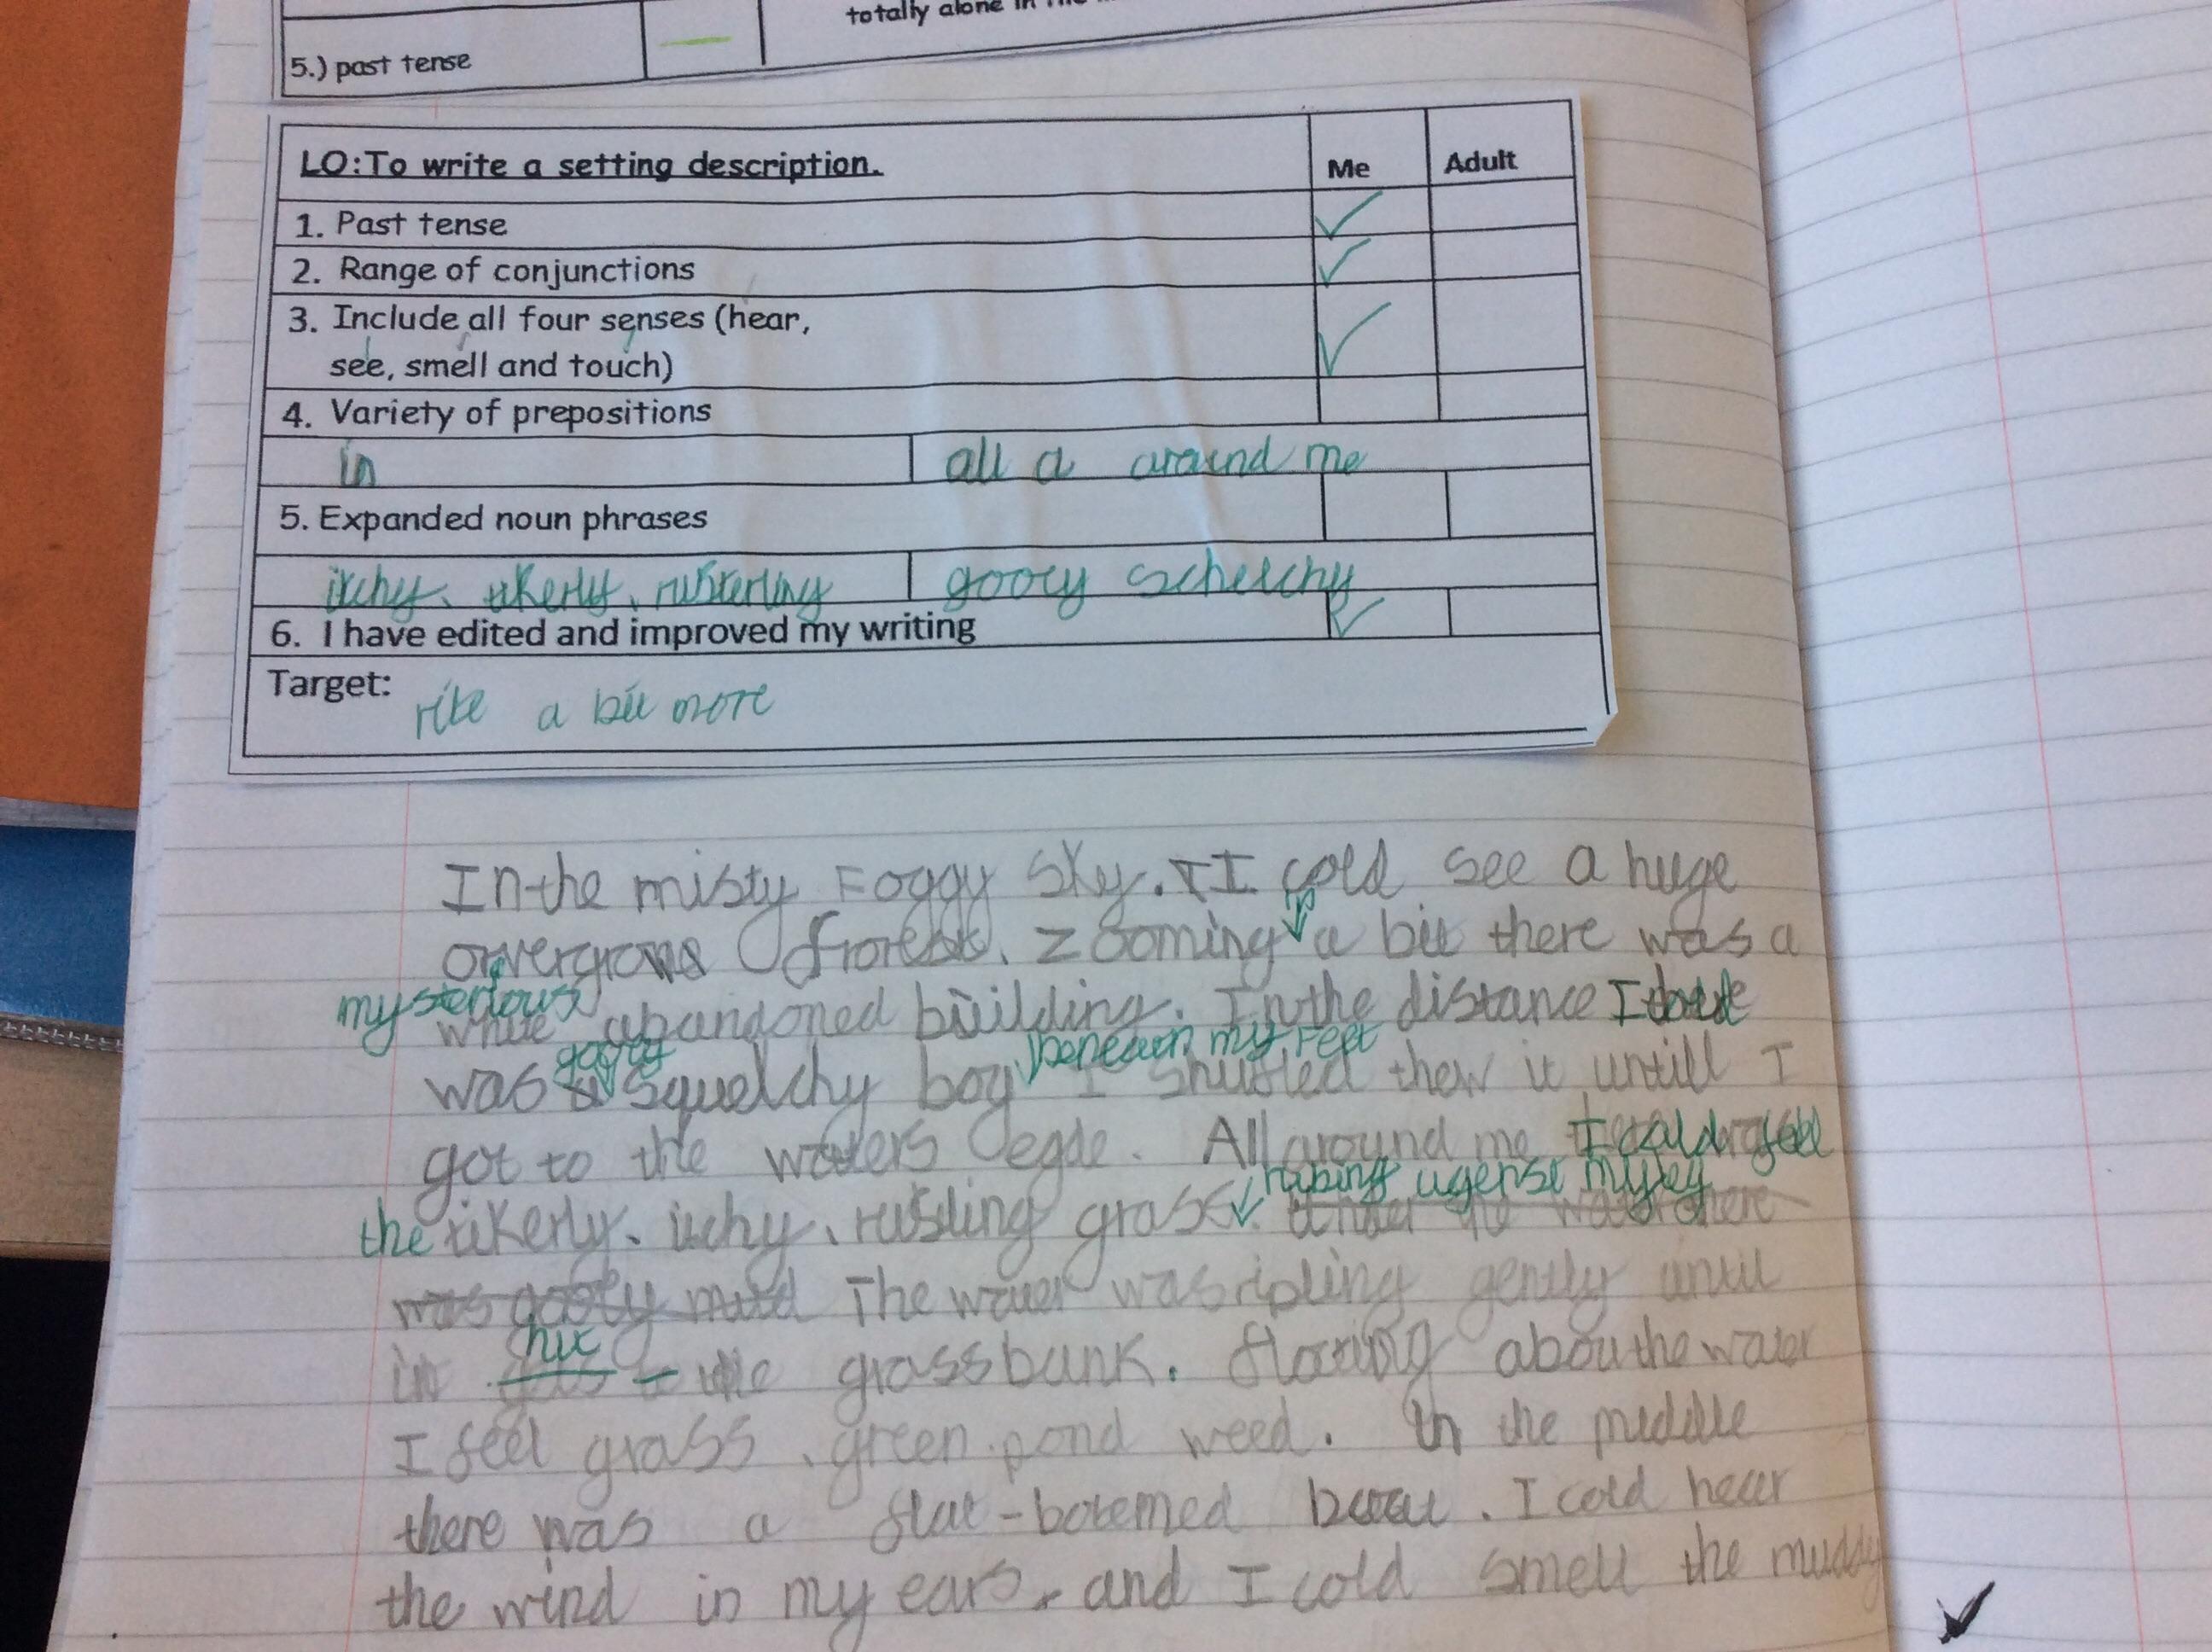 totally alone in the
5.) past tense
LO:To write a setting description. Me Adult
1. Past tense
2. Range of conjunctions
3. Include all four senses (hear,
see, smell and touch)
4. Variety of prepositions
in all a around me
5. Expanded noun phrases
itchy, tikerly, rusterling gooey schelchy
6. I have edited and improved my writing
Target: rite a bit more
In the misty Foggy Sky. I cold see a huge
forest. Zooming in a bit there was a
mysterious
white abandoned building. In the distance
gooey beneath my Feet
was a squelchy bog I thew it untill I
got to the waters egde. All around me I cald feel
rubing agenst my leg
the tikerly, itchy, rusling grass. under the water there
was gooey mud The water was ripling gently until
hit
in the grass bank. floating abou the water
I feel grass, green pond weed. In the middle
there was a flat-botemed boat. I cold hear
the wind in my ears, and I cold smell the muddy